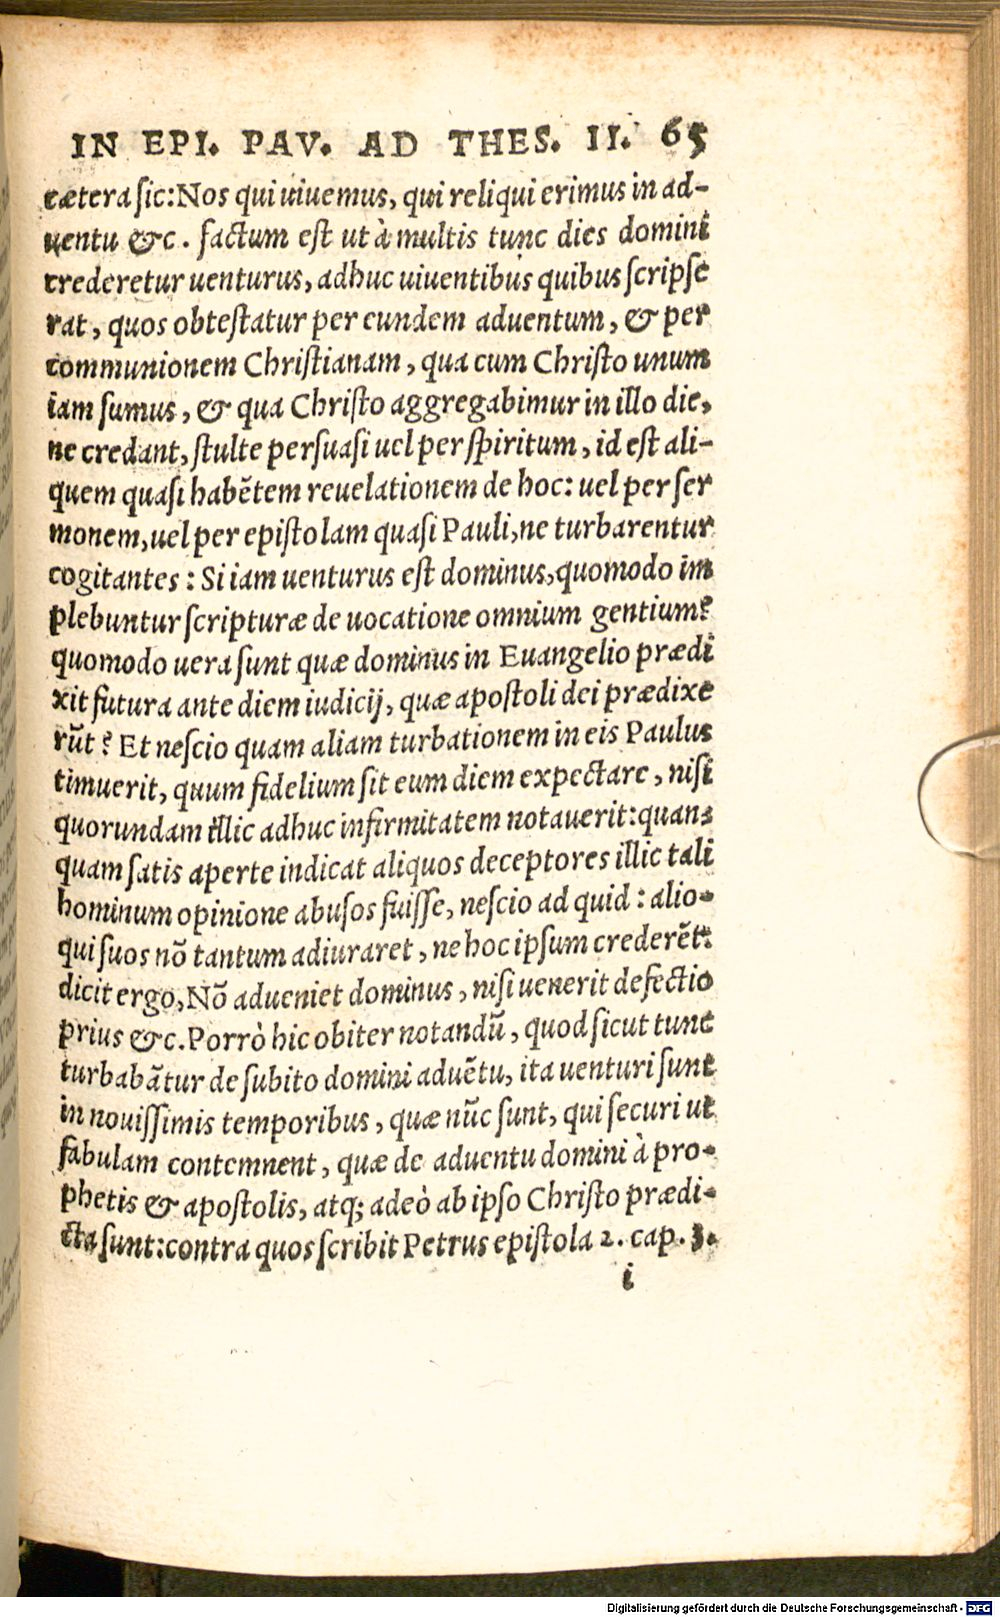 IN EPI. PAV. AD THES. II. 65
cætera sic: Nos qui uiuemus, qui reliqui erimus in ad-
uentu &c. factum est ut à multis tunc dies domini
crederetur uenturus, adhuc uiuentibus quibus scripse
rat, quos obtestatur per eundem aduentum, & per
communionem Christianam, qua cum Christo unum
iam sumus, & qua Christo aggregabimur in illo die,
ne credant, stulte persuasi uel per spiritum, id est ali-
quem quasi habẽtem reuelationem de hoc: uel per ser
monem, uel per epistolam quasi Pauli, ne turbarentur
cogitantes: Si iam uenturus est dominus, quomodo im
plebuntur scripturæ de uocatione omnium gentium?
quomodo uera sunt quæ dominus in Euangelio prædi
xit futura ante diem iudicij, quæ apostoli dei prædixe
rũt? Et nescio quam aliam turbationem in eis Paulus
timuerit, quum fidelium sit eum diem expectare, nisi
quorundam illic adhuc infirmitatem notauerit: quan-
quam satis aperte indicat aliquos deceptores illic tali
hominum opinione abusos fuisse, nescio ad quid: alio-
qui suos nõ tantum adiuraret, ne hoc ipsum crederẽt:
dicit ergo, Nõ adueniet dominus, nisi uenerit defectio
prius &c. Porrò hic obiter notandũ, quod sicut tunc
turbabãtur de subito domini aduẽtu, ita uenturi sunt
in nouissimis temporibus, quæ nũc sunt, qui securi ut
fabulam contemnent, quæ de aduentu domini à pro-
phetis & apostolis, atq; adeò ab ipso Christo prædi-
cta sunt: contra quos scribit Petrus epistola 2. cap. 3.
i
Digitalisierung gefördert durch die Deutsche Forschungsgemeinschaft - DFG